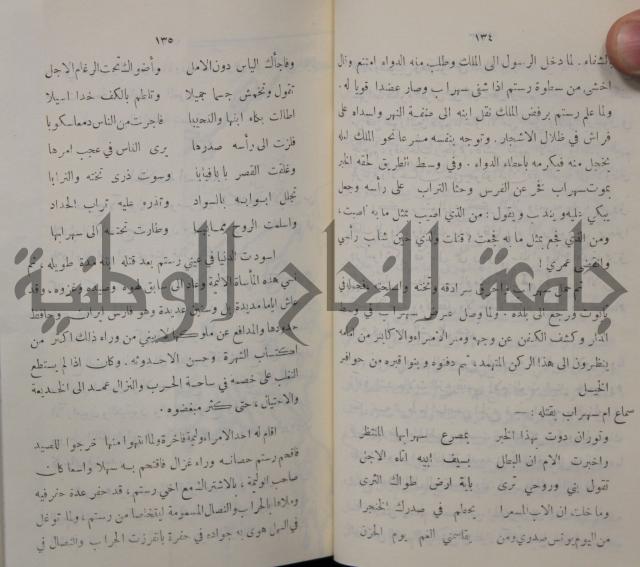 ١٣٤
بالشفاء. لما دخل الرسول الى الملك وطلب منه الدواء امتنع وقال
اخشى من سطوة رستم اذا شفى سهراب وصار عضدا قويا له.
ولما علم رستم برفض الملك نقل ابنه الى ضفة النهر واسداه على
فراش في ظلال الاشجار. وتوجه بنفسه مسرعا نحو الملك لعله
يخجل منه فيكرمه باعطاء الدواء. وفي وسط الطريق لحقه الخبر
بموت سهراب نخر عن الفرس وحثا التراب على رأسه وجعل
يبكي عليه ويندب ويقول: من الذي اصيب بمثل ما به اصبت،
ومن الذي فجع بمثل ما به فجعت؟ قتلت ولدي حين شاب رأسي
وانقضى عمري!
سهراب سرادقه وتخته
تابوت ورجع الى بلده. ولما وصل سهراب في وسط
الدار وكشف الكفن عن وجهه ومر الامراء والاكابر من امامه
ينظرون الى هذا الركن المنهد، ثم دفنوه وبنوا قبره من حوافر
الخيل
سماع ام سهراب بقتله: —
وتوران دوت بهذا الخبر بمصرع سهرابها المنتظر
واخبرت الام ان البطل بسيف ابيه اتاه الاجل
تقول بني وروحي ترى باية ارض طواك الثرى
وما خلت ان الاب المسعرا يحطم في صدرك الخنجرا
من اليوم يونس صدري ومن يقاسمني الغم يوم الحزن
١٣٥
وفاجأك الياس دون الامل وأضواك تحت الرغام الاجل
تقول وتخدش جسما جميلا وتلطم بالكف خدا اسيلا
اطالت بكاء ابنها والنحيبا فاجرت من الناس دمعا سكوبا
فلزت الى رأسه صدرها يرى الناس في عجب امرها
وغلقت القصر بابا فبابا وسوت ذرى تخته والترابا
تجلل ابوابه بالسواد وتذره عليه تراب الحداد
واسلمت الروح وطارت تحتفه الى سهرابها
اسودت الدنيا في عيني رستم بعد قتله ابنه مدة طويلة، ثم
نسي هذه المأساة الاليمة وعاد الى سابق لهوه وصيده وغزوه. وقد
عاش اياما مديدة وهو فارس ايران وحافظ
حدودها والمدافع عن ملوكها لا يبني من وراء ذلك اكثر من
اكتساب الشهرة وحسن الاحدوثه. وكان اذا لم يستطع
التغلب على خصمه في ساحة الحرب والنزال عمد الى الخديعة
والاحتيال، حتى كثر مبغضوه.
اقام له احد الامراء وليمة فاخرة ولما انتهوا منها خرجوا للصيد
فاقحم رستم حصانه وراء غزال فاقتحم به سهلا واسعا كان
صاحب الوليمة، بالاشتراك مع اخي رستم، قد احفر عدة حفر فيه
وملاها بالحراب والنصال المسمومة ليقتصا من رستم، ولما توغل
في السهل هوى به جواده في حفرة فانغرزت الحراب والنصال في
جامعة النجاح الوطنية